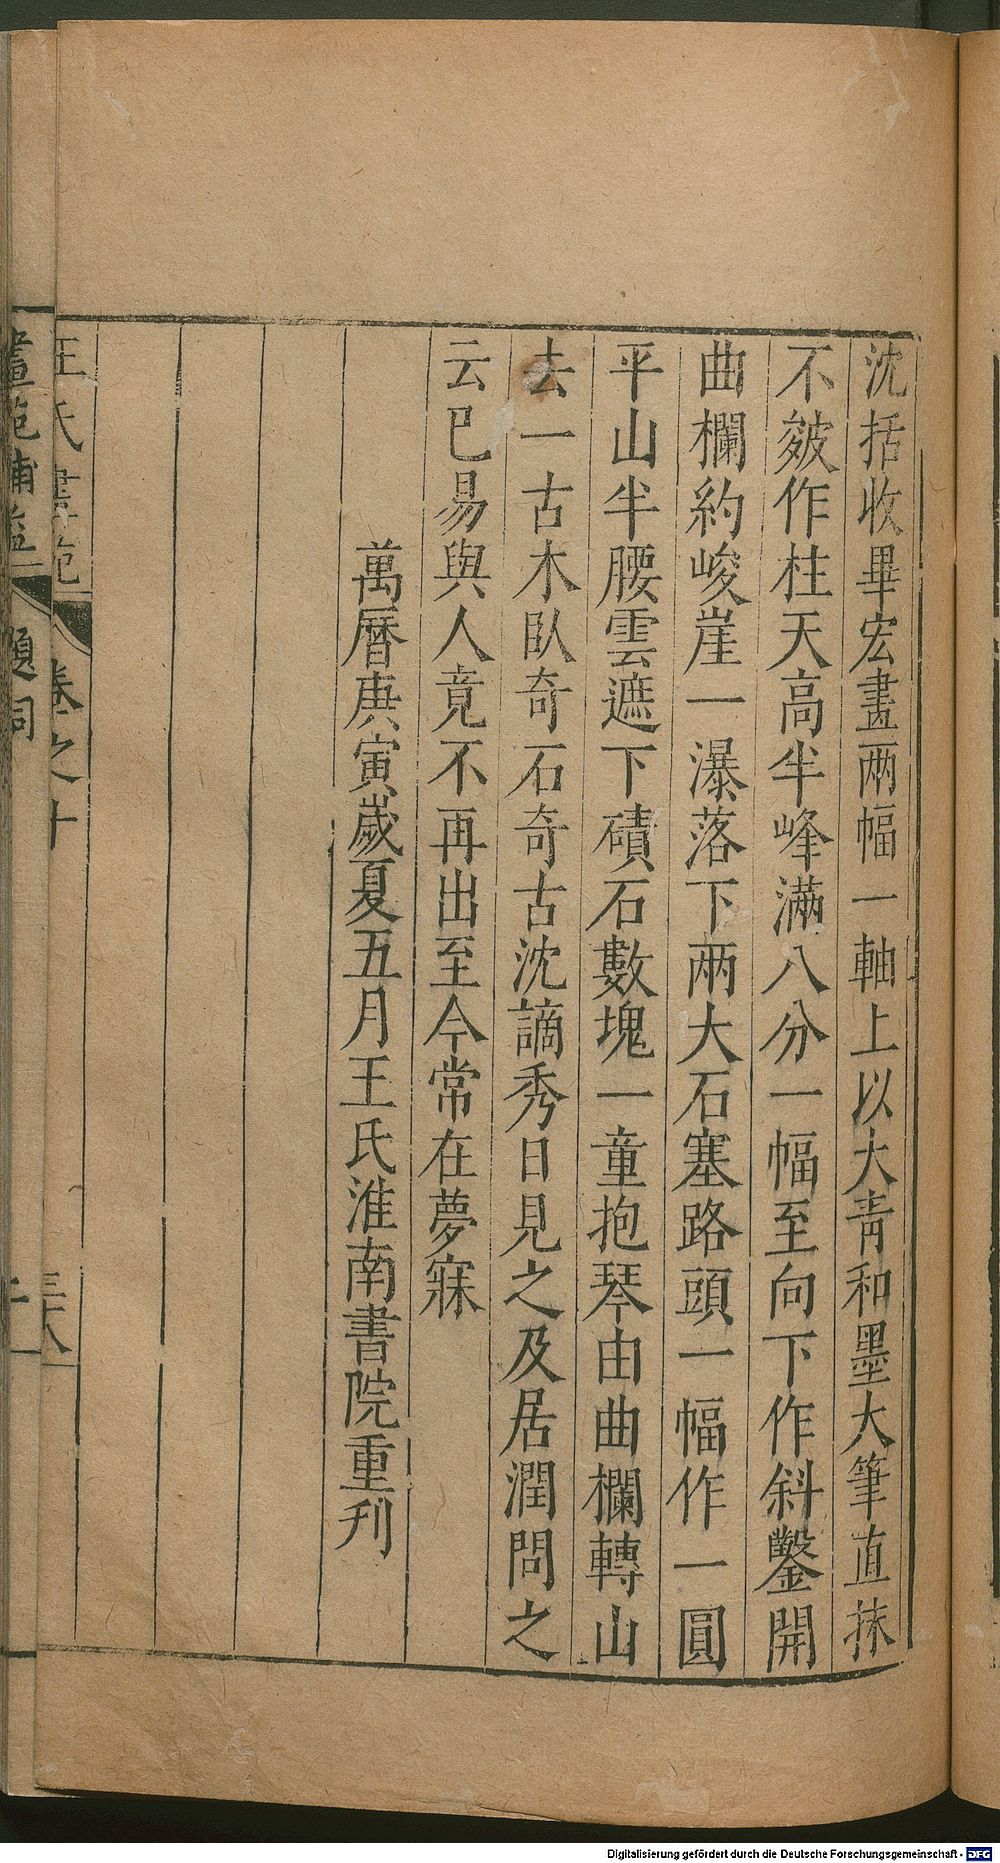 沈括收畢宏畫两幅一軸上以大青和墨大筆直抹
不皴作柱天高半峰滿八分一幅至向下作斜鑿開
曲欄約峻崖一瀑落下两大石塞路頭一幅作一圓
平山半腰雲遮下磧石數塊一童抱琴由曲欄轉山
去一古木臥奇石奇古沈謫秀日見之及居潤問之
云巳易與人竟不再出至今常在夢寐
萬曆庚寅歲夏五月王氏淮南書院重刋
王氏畫苑 卷之十 三十八
畫苑補益 題詞 二
Digitalisierung gefördert durch die Deutsche Forschungsgemeinschaft - DFG